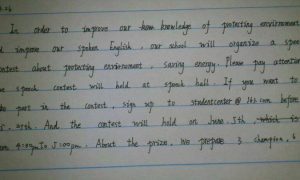 In order to improve our knowledge of protecting environment
improve our spoken English, our school will organize a
contest about protecting environment, saving energy. Please pay
speech contest will held at speech hall. If you want to
part in the contest, sign up to studentcenter@163.com before
25th. And the contest will held on June 5th
4:00pm to 5:00pm. About the prize, We prepare 3 champion,